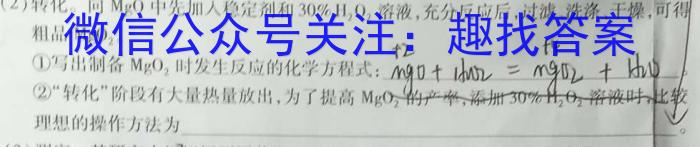 (2)转化。向 MgO 中先加入稳定剂和30%H₂O₂溶液,充分反应后,过滤、洗涤、干燥,可得
粗品
微信公众号关注：趣找答案
①写出制备 MgO₂ 时发生反应的化学方程式: mgO + H₂O₂ = mgO₂ + H₂O
②“转化”阶段有大量热量放出,为了提高 MgO₂ 的产率,添加30%H₂O₂溶液时,比较
理想的操作方法为 。